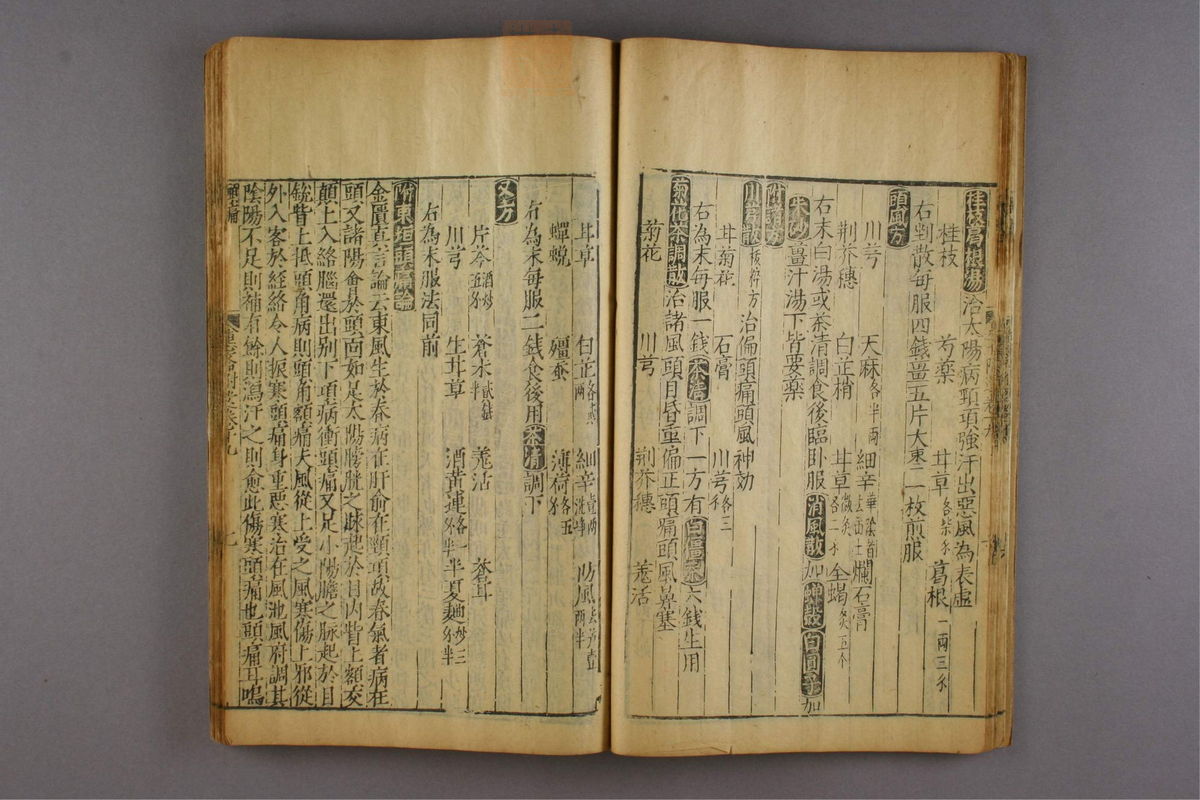 桂枝葛根湯 治太陽病項強汗出惡風為表虛
桂枝 芍藥 甘草 葛根 一兩三分
右剉散每服四錢薑五片大棗二枚煎服
頭風方
川芎 天麻各半兩 細辛 石膏
荆芥穗 白芷梢 甘草 全蝎
右末白湯或茶清調食後臨卧服消風散加蟬殼白僵蠶加
朱砂薑汁湯下皆要藥
附諸方
川芎散 治偏頭痛頭風神効
甘菊花 石膏 川芎各三
右為末每服一錢茶清調下一方有白僵蠶六錢生用
菊花茶調散治諸風頭目昏重偏正頭痛頭風鼻塞
菊花 川芎 荆芥穗 羗活
甘草 白芷各二兩 細辛壹兩洗 防風去芦壹兩半
蟬蛻 殭蚕 薄荷各五
右為末每服二錢食後用茶清調下
又方
片芩酒炒五 蒼朮 羗活 蒼耳
川芎 生甘草 酒黃連各一 半夏麯炒三
右為末服法同前
附東垣頭痛論
金匱真言論云東風生於春病在肝俞在頸項故春氣者病在
頭又諸陽會於頭面如足太陽膀胱之脉起於目內眥上額交
顛上入絡腦還出別下項病衝頭痛又足小陽膽之脉起於目
銳眥上抵頭角病則頭角額痛夫風從上受之風寒傷上邪從
外入客於經絡令人振寒頭痛身重惡寒治在風池風府調其
陰陽不足則補有餘則瀉汗之則愈此傷寒頭痛也頭痛耳鳴